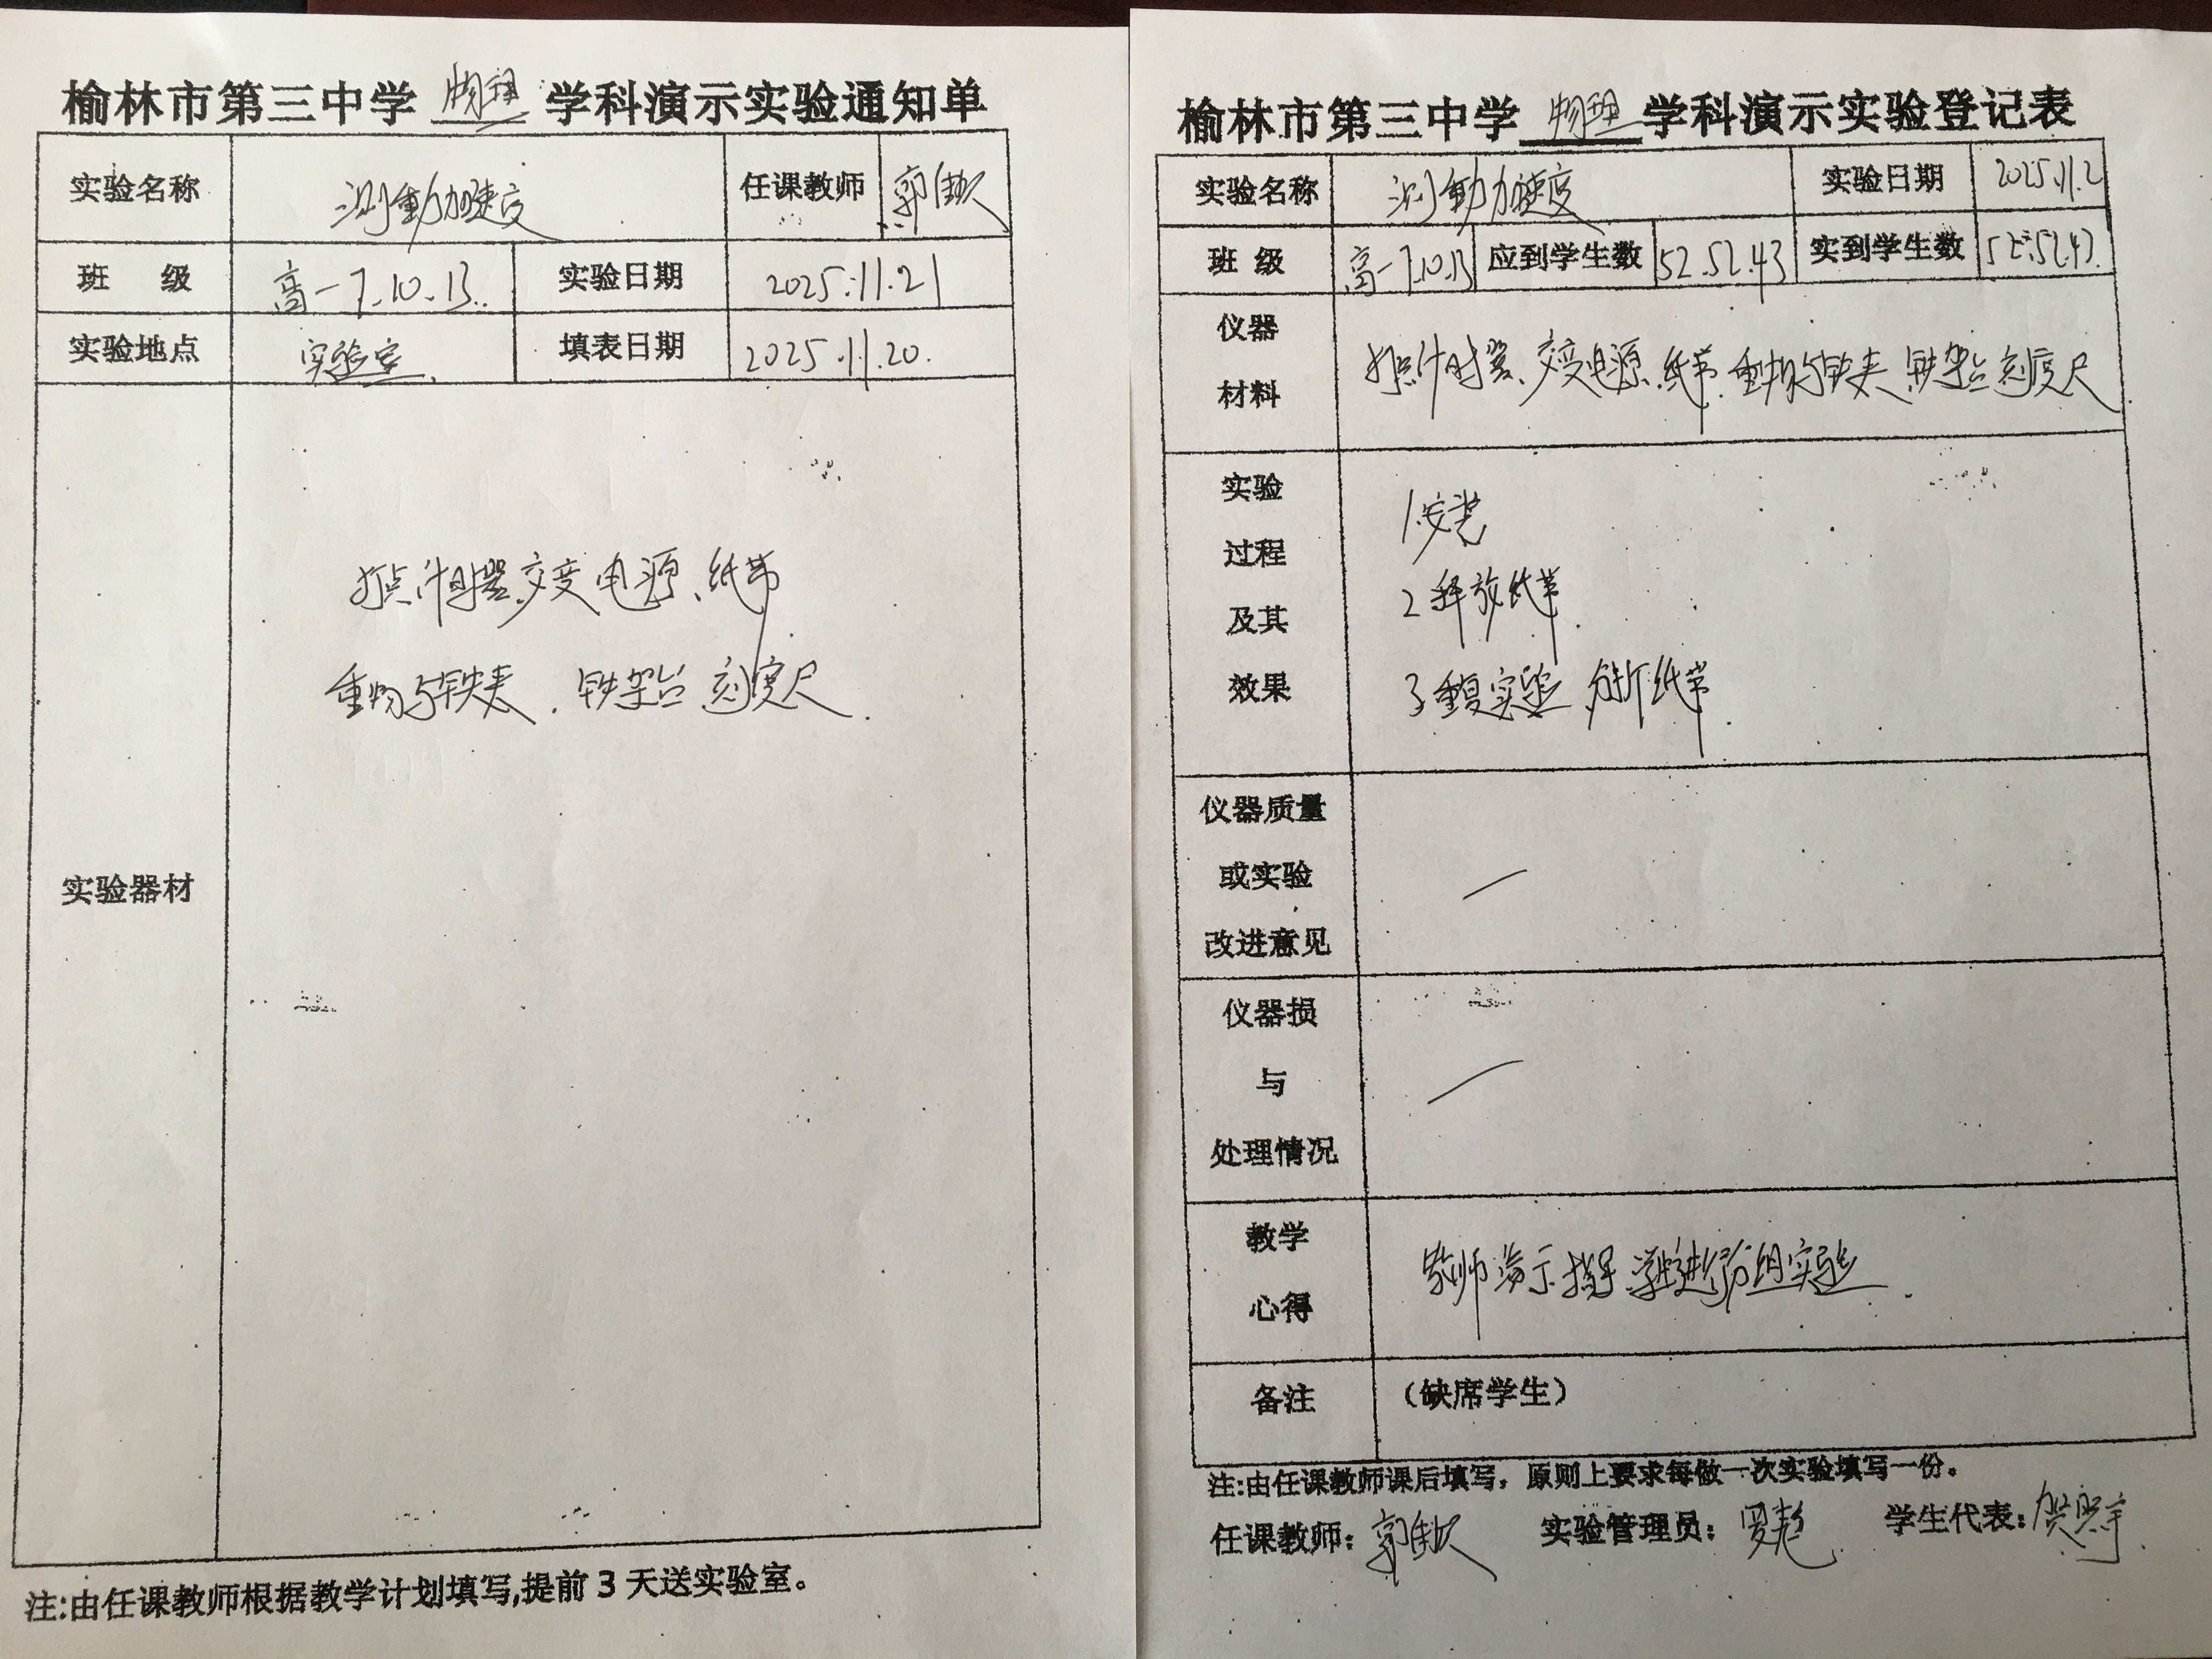 榆林市第三中学 物理 学科演示实验通知单
实验名称 测重力加速度 任课教师 郭
班 级 高一7.10.13. 实验日期 2025.11.21
实验地点 实验室. 填表日期 2025.11.20.
实验器材
打点计时器、交变电源、纸带
重物与铁夹、铁架台 刻度尺.
注:由任课教师根据教学计划填写,提前3天送实验室。
榆林市第三中学 物理 学科演示实验登记表
实验名称 测重力加速度 实验日期 2025.11.2
班 级 高一7.10.13 应到学生数 52.52.43 实到学生数 52.52.43.
仪器
材料
打点计时器、交变电源、纸带、重物与铁夹、铁架台 刻度尺
实验
过程
及其
效果
1.安装
2 释放纸带.
3 重复实验 分析纸带.
仪器质量
或实验
改进意见
仪器损
与
处理情况
教学
心得
教师演示指导 学生进行分组实验.
备注 (缺席学生)
注:由任课教师课后填写，原则上要求每做一次实验填写一份。
任课教师: 郭 实验管理员: 学生代表: 贺